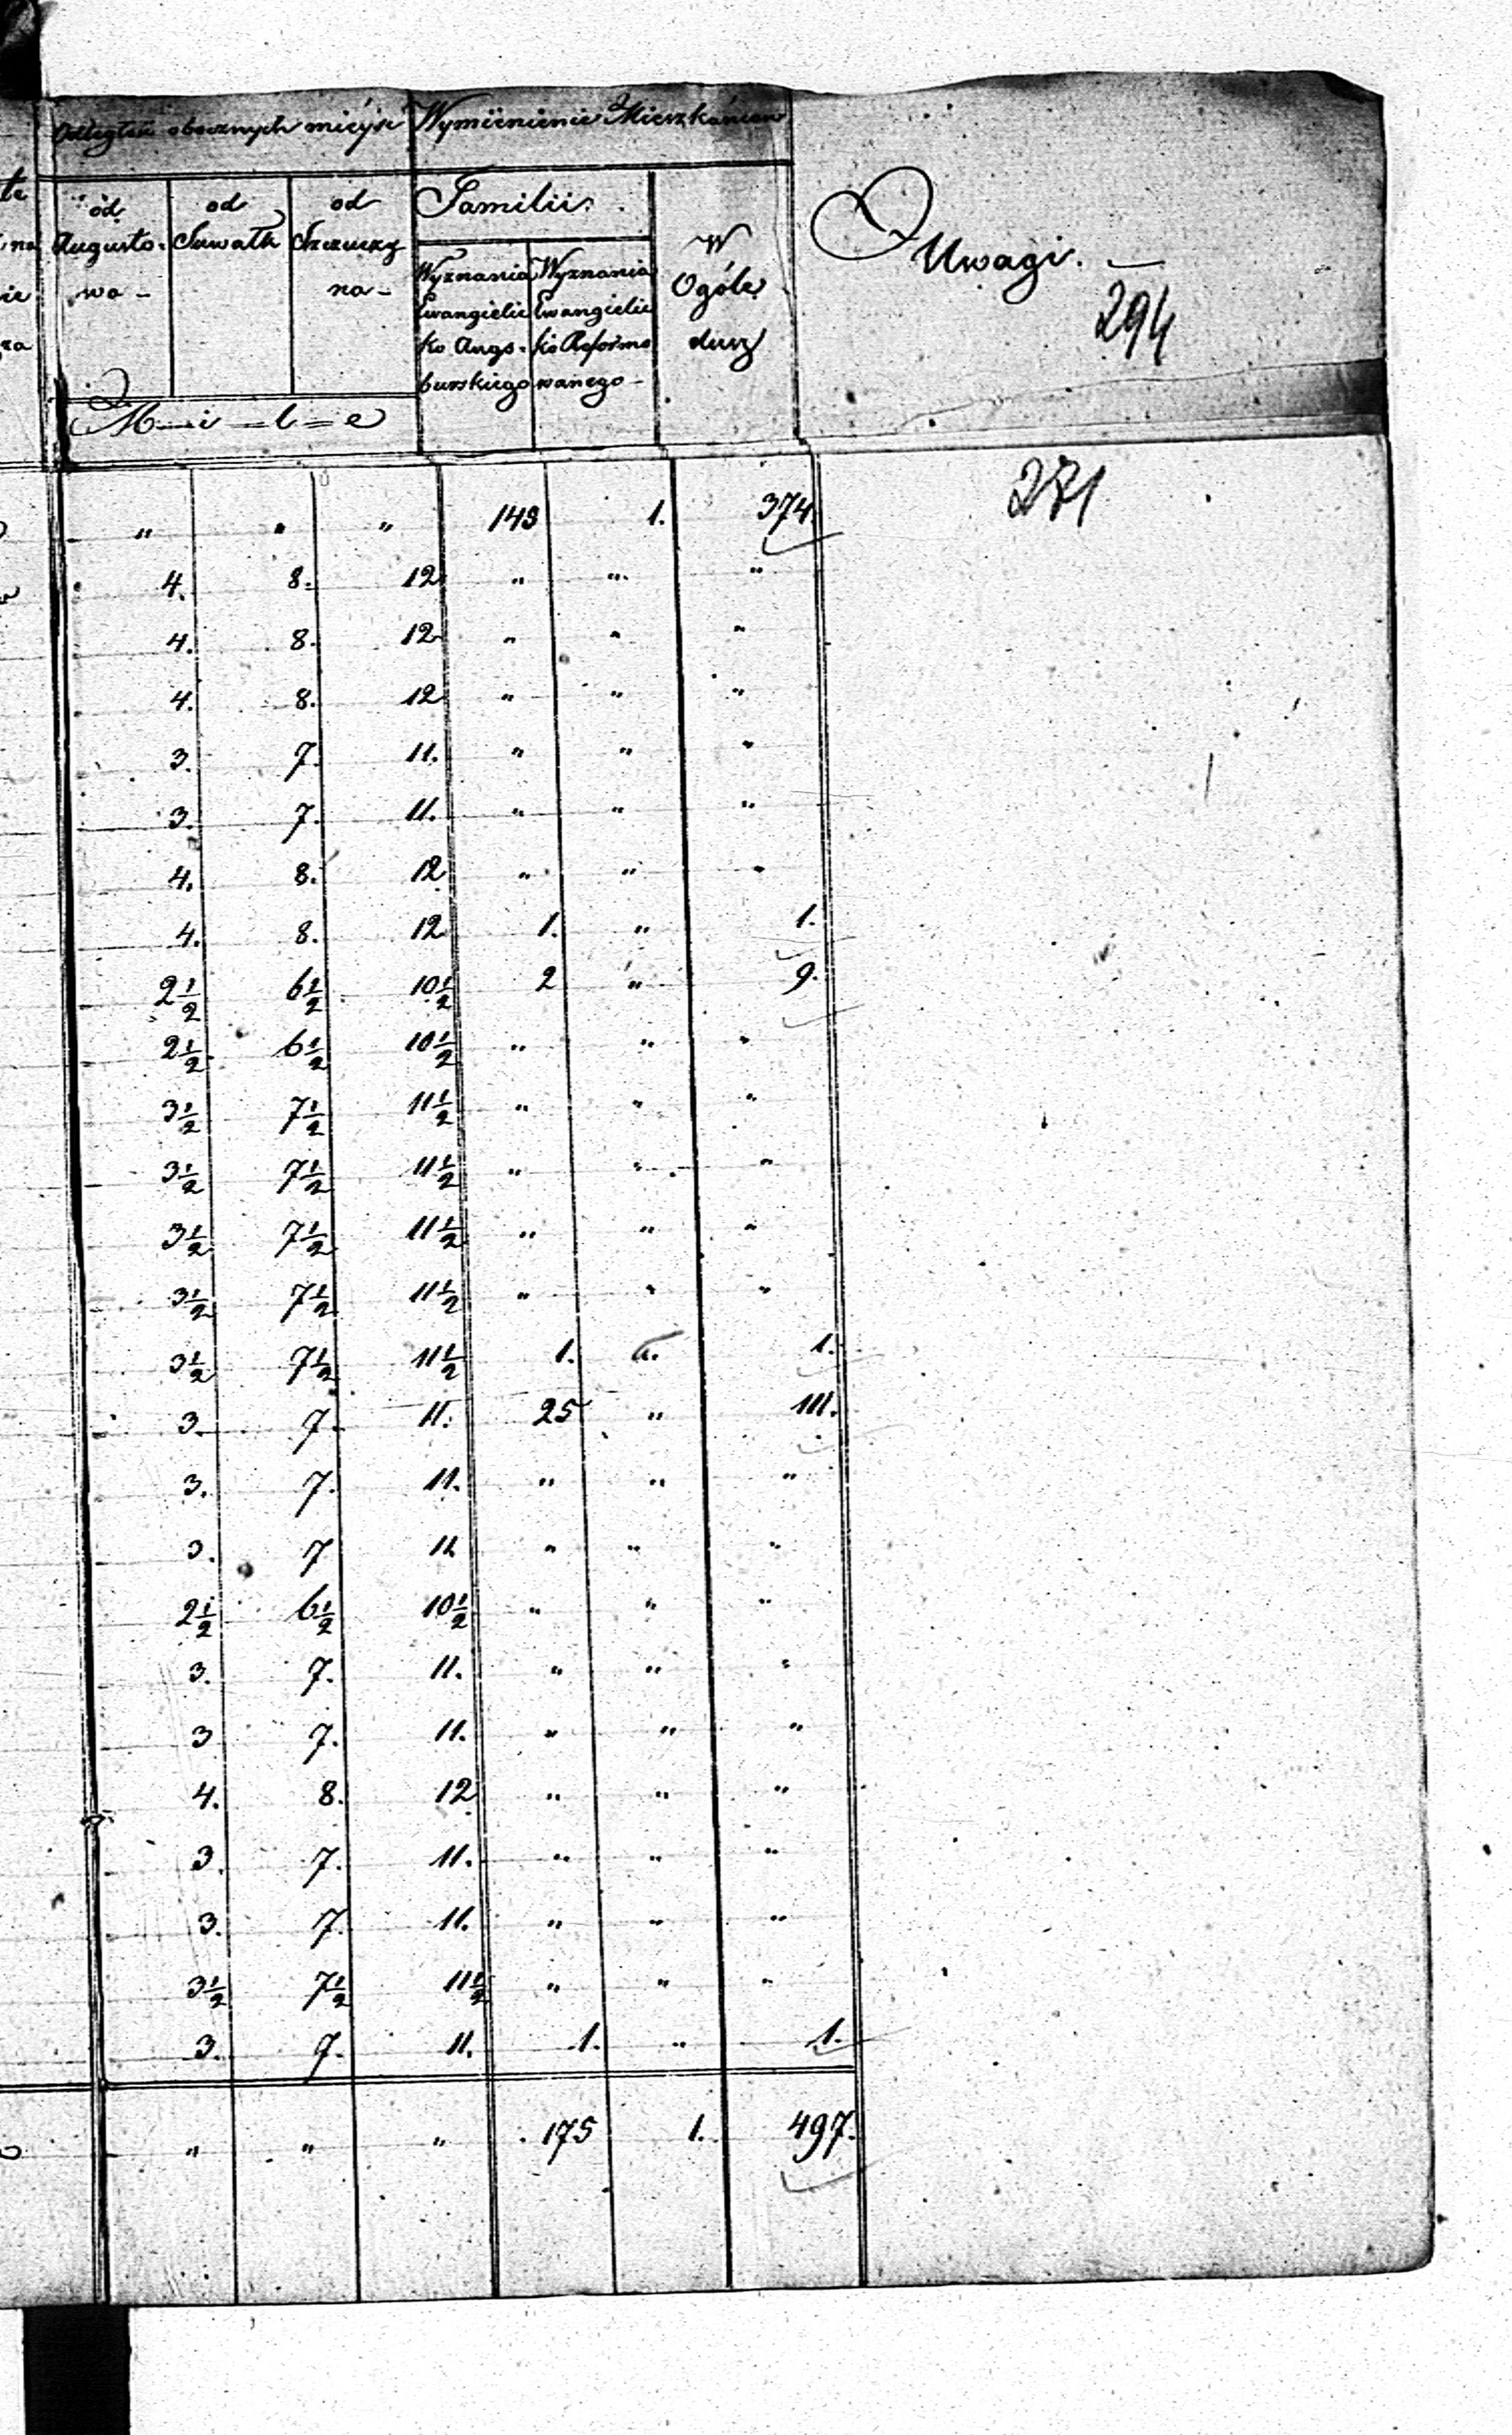 Odległość obocznych miéysc Wymienienie Mieszkańcow
od Augusto-wa -
od Suwałk
od Szczuczy na -
Familii
Wyznania Ewangielicko Augsburskiego
Wyznania Ewangielicko Reformowanego -
W Ogóle dusz
Uwagi. —
294
M-i-l-e
271
" " " 149 1. 374.
4. 8. 12 " " "
4. 8. 12 " " "
4. 8. 12 " " "
3. 7. 11. " " "
3. 7. 11. " " "
4. 8. 12 " " "
4. 8. 12 1. " 1.
2½ 6½ 10½ 2 " 9.
2½ 6½ 10½ " " "
3½ 7½ 11½ " " "
3½ 7½ 11½ " " "
3½ 7½ 11½ " " "
3½ 7½ 11½ " " "
3½ 7½ 11½ 1. " 1.
3. 7. 11. 25 " 111.
3. 7. 11. " " "
3. 7 11 " " "
2½ 6½ 10½ " " "
3. 7. 11. " " "
3 7. 11. " " "
4. 8. 12 " " "
3. 7. 11. " " "
3. 7. 11. " " "
3½ 7½ 11½ " " "
3. 7. 11. 1. " 1.
" " " 175 1. 497.